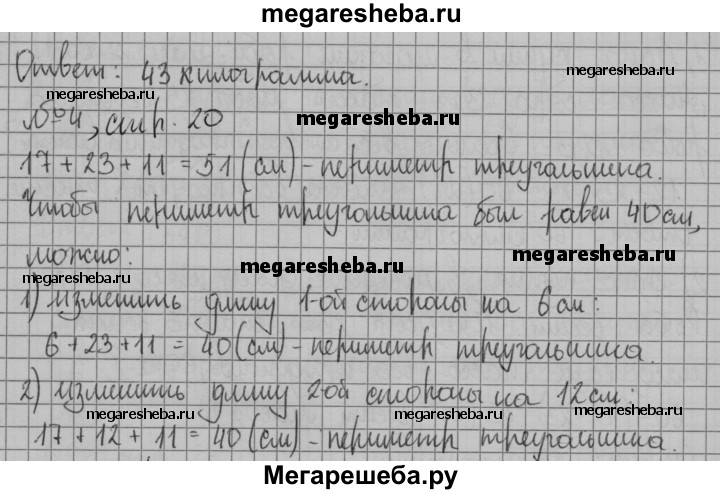 megaresheba.ru
Ответ: 43 килограмма.
megaresheba.ru
megaresheba.ru
№4, стр. 20
megaresheba.ru
17 + 23 + 11 = 51 (см) - периметр треугольника.
Чтобы периметр треугольника был равен 40 см,
можно:
megaresheba.ru
megaresheba.ru
megaresheba.ru
1) изменить длину 1-ой стороны на 6 см:
6 + 23 + 11 = 40 (см) - периметр треугольника.
2) изменить длину 2-ой стороны на 12 см:
megaresheba.ru
megaresheba.ru
megaresheba.ru
17 + 12 + 11 = 40 (см) - периметр треугольника.
Мегарешеба.ру